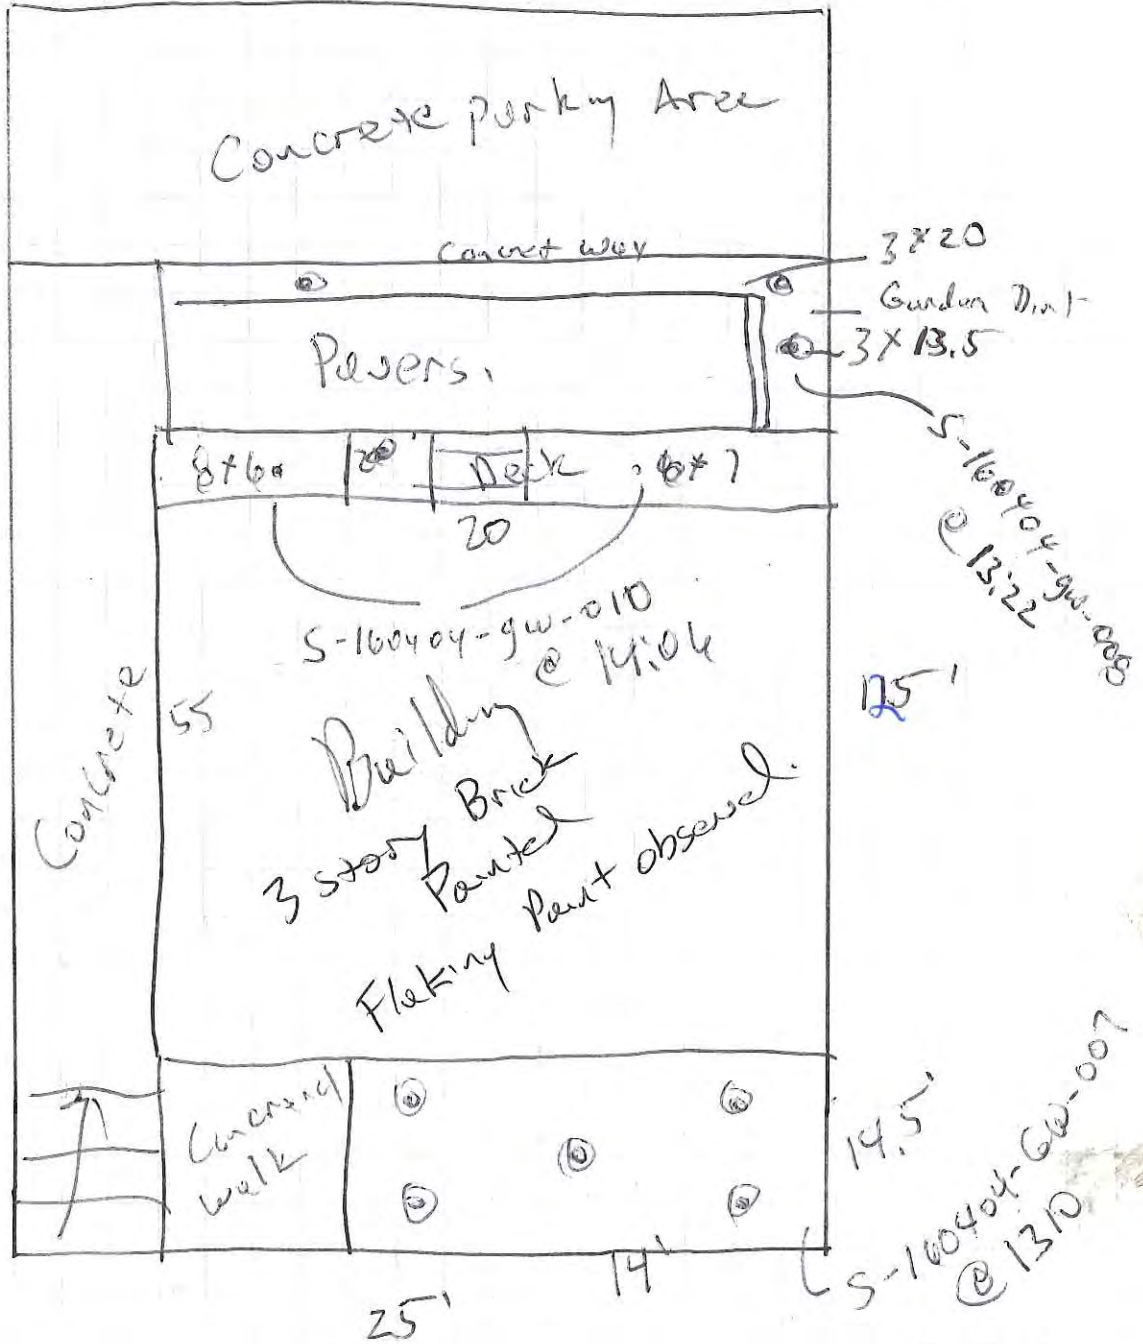 Concrete parking Area
Concret way
3 x 20
Garden Dirt
3 x 13.5
Pavers.
S-160404-gw-008
@ 13:22
8x6
Deck
6x7
20
S-160404-gw-010
@ 14:04
Concrete
55
125'
Building
3 story Brick
Painted
Flaking Paint observed.
walk
14.5'
14'
25'
S-160404-GW-007
@ 1310